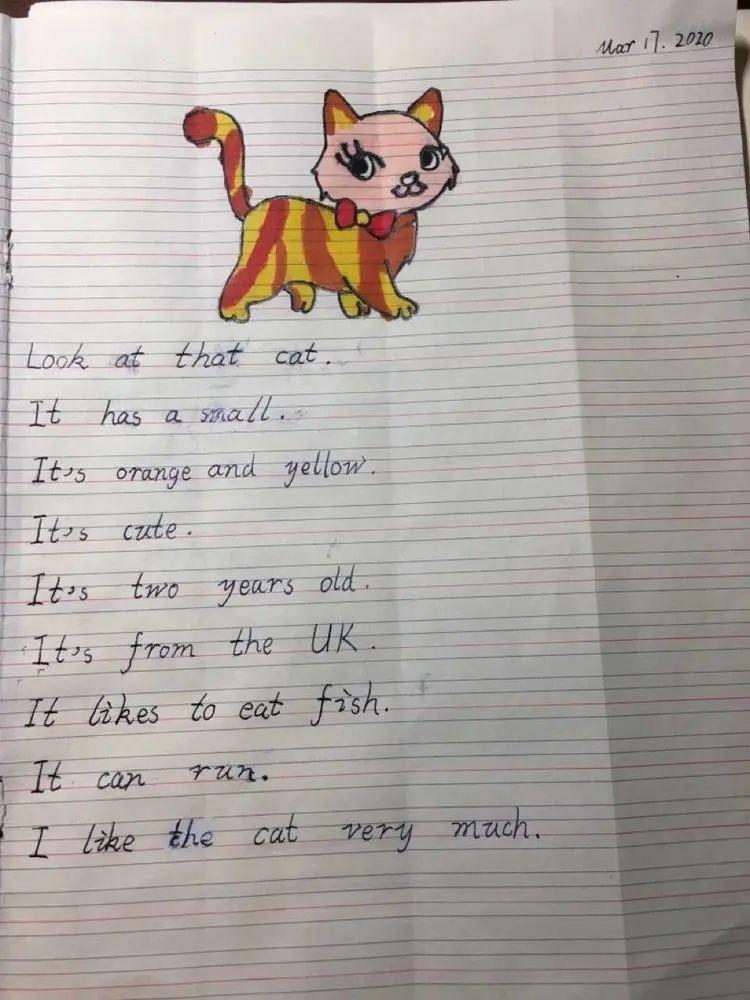 Mar 17. 2020
Look at that cat.
It has a small.
It's orange and yellow.
It's cute.
It's two years old.
It's from the UK.
It likes to eat fish.
It can run.
I like the cat very much.